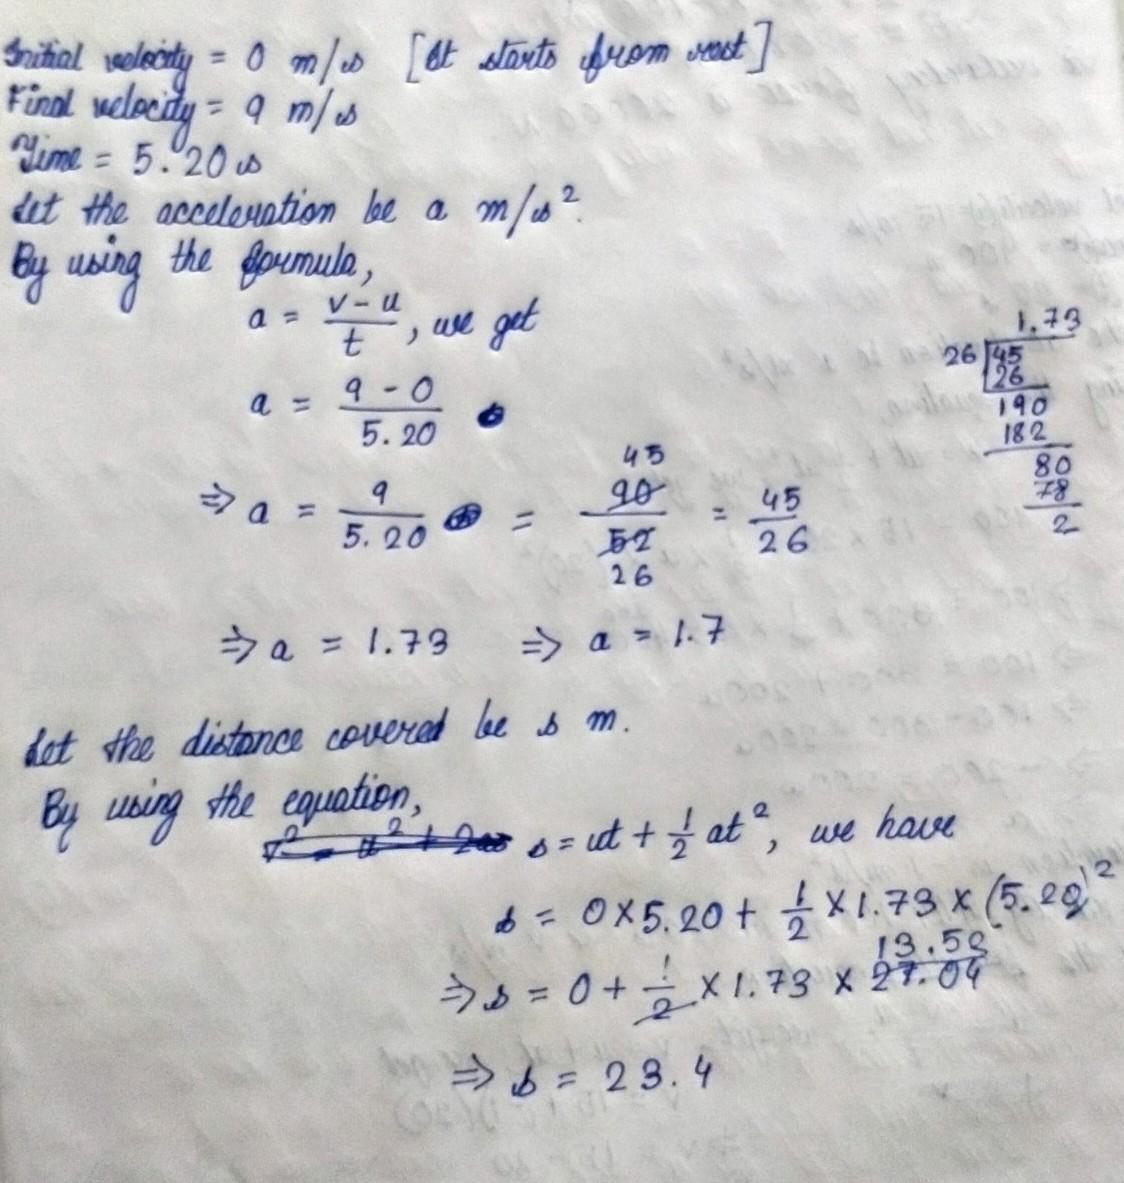 Initial velocity = 0 m/s [It starts from rest]
Final velocity = 9 m/s
Time = 5.20 s
Let the acceleration be a m/s².
By using the formula,
a = (v - u)/t, we get
a = (9 - 0)/5.20
⇒ a = 9/5.20 = 90/52 = 45/26
45
26
⇒ a = 1.73 ⇒ a = 1.7
1.73
26 45
26
190
182
80
78
2
Let the distance covered be s m.
By using the equation,
v² = u² + 2as s = ut + 1/2 at², we have
s = 0×5.20 + 1/2 × 1.73 × (5.20)²
13.52
⇒ s = 0 + 1/2 × 1.73 × 27.04
⇒ s = 23.4